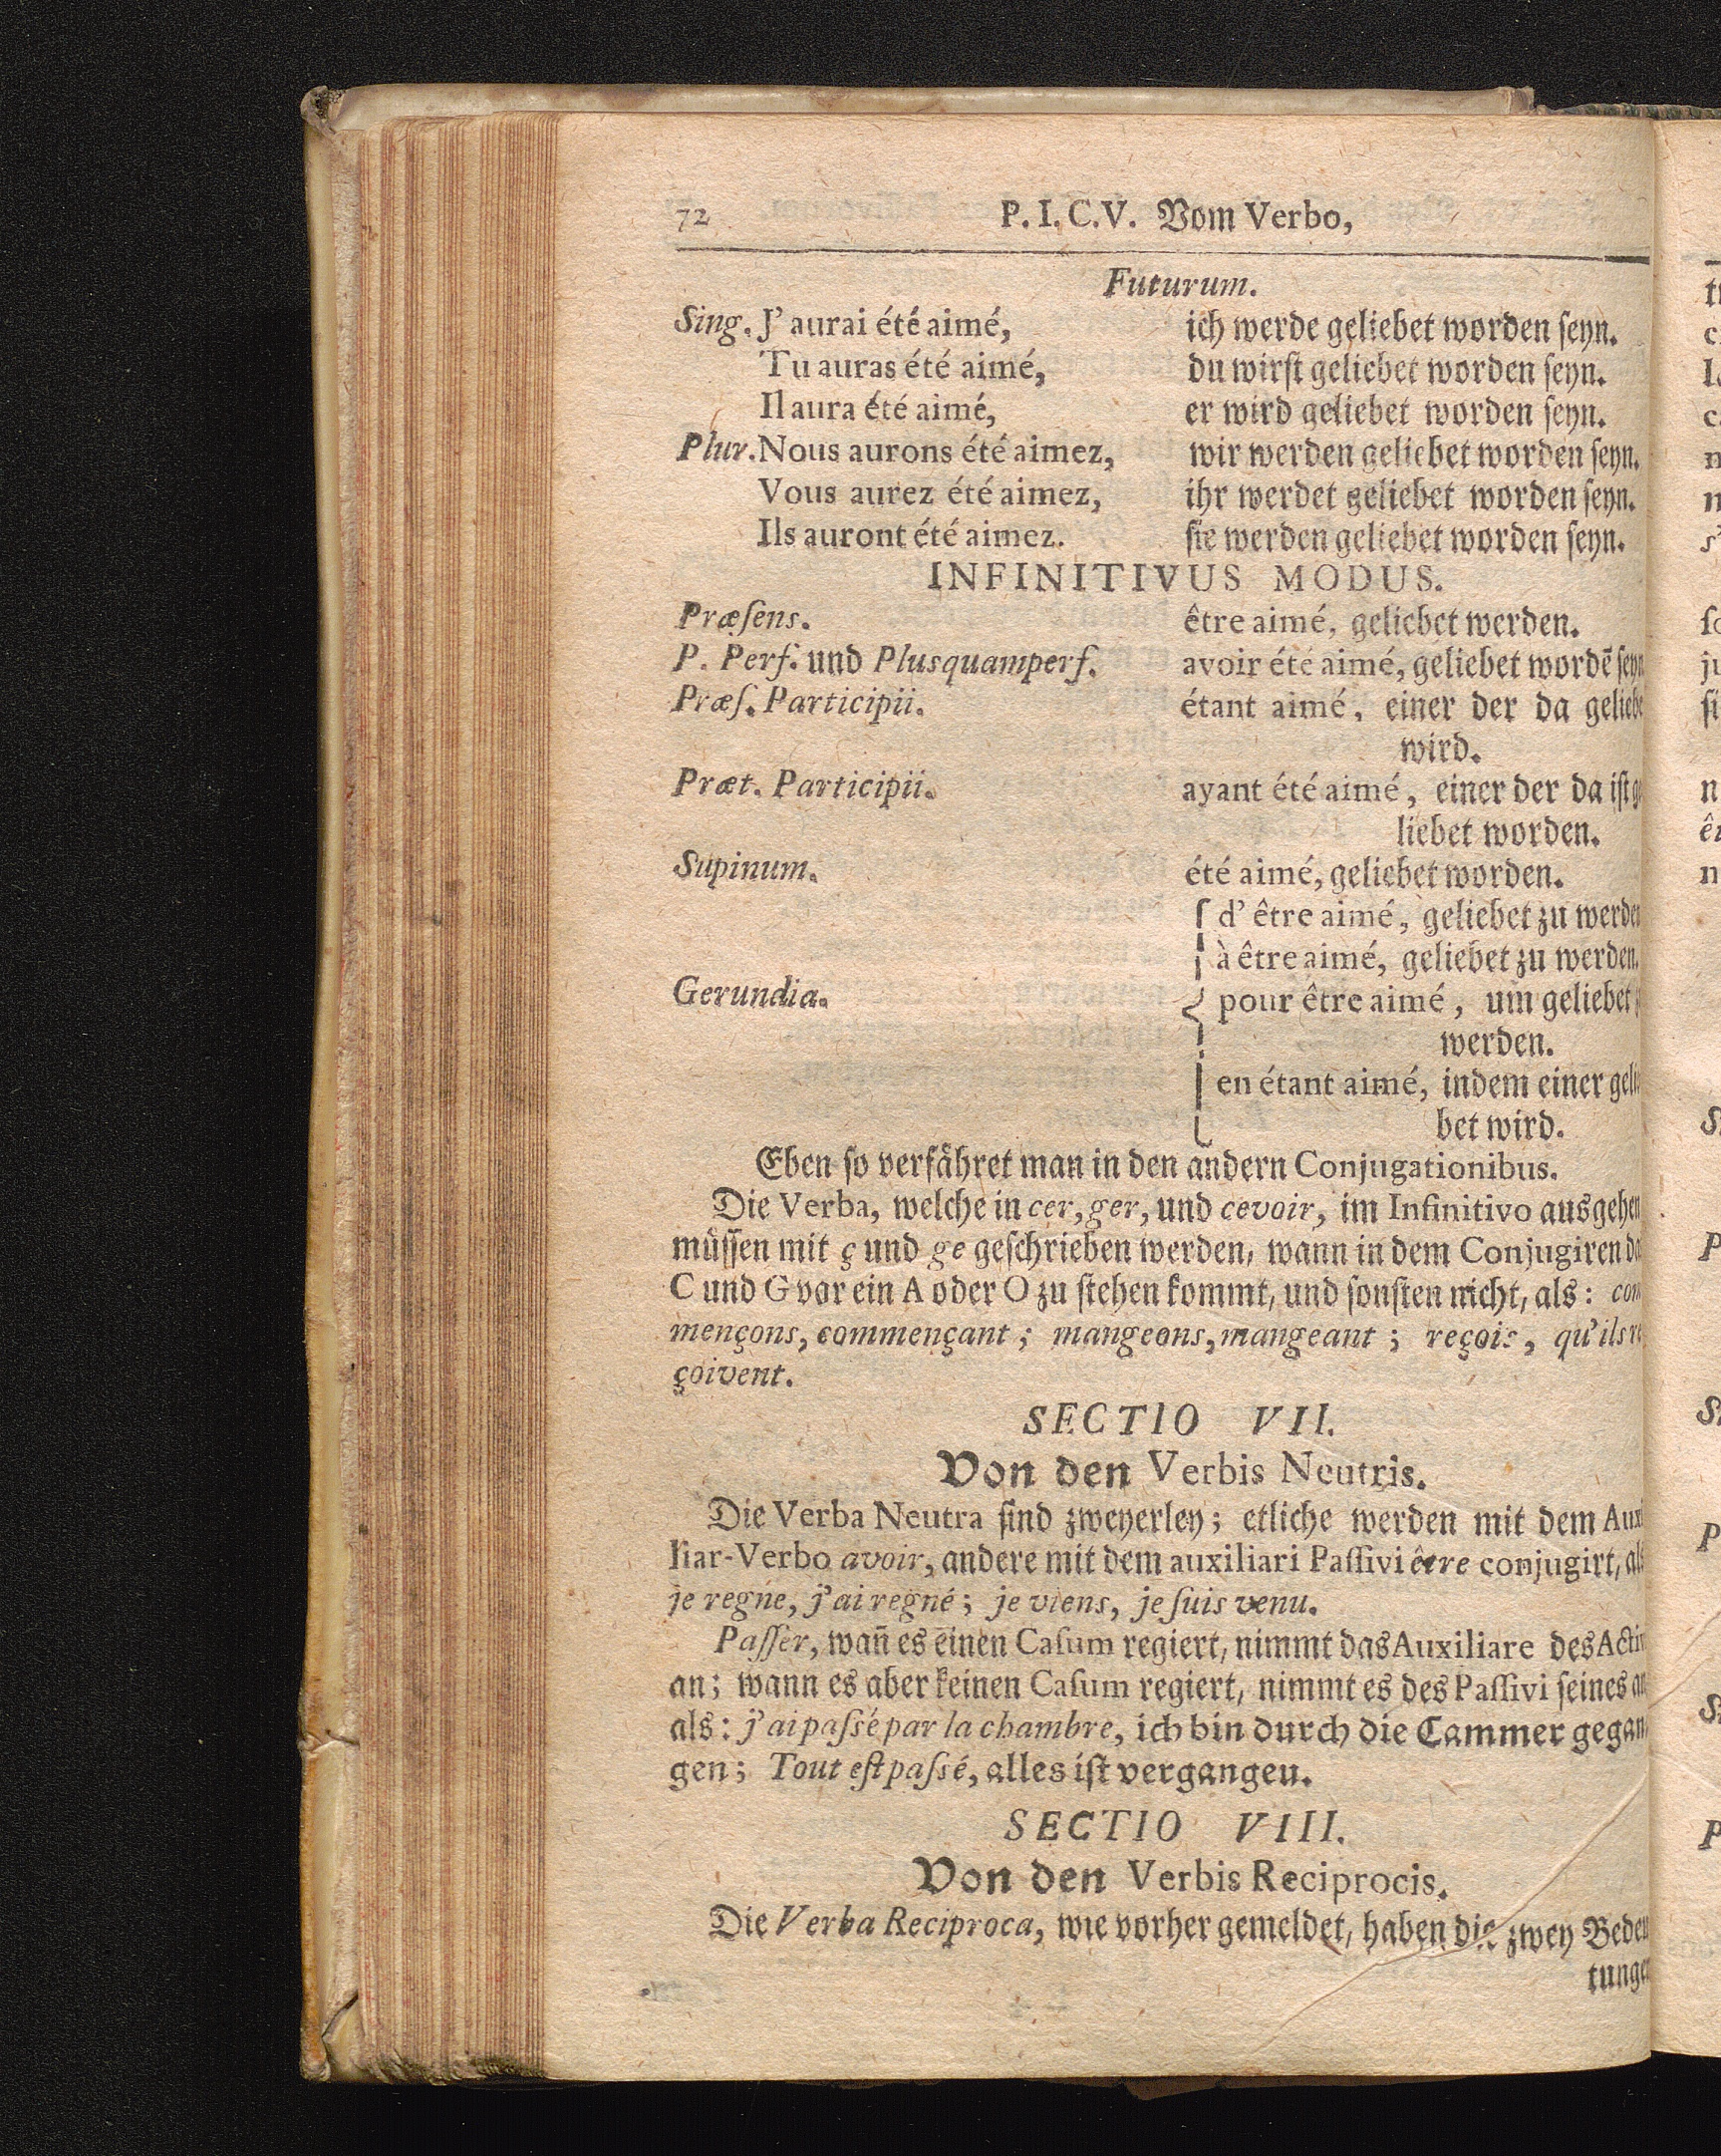 72 P. I. C. V. Vom Verbo,
Futurum.
Sing. J' aurai été aimé, ich werde geliebet worden ſeyn.
Tu auras été aimé, du wirſt geliebet worden ſeyn.
Il aura été aimé, er wird geliebet worden ſeyn.
Plur. Nous aurons été aimez, wir werden geliebet worden ſeyn.
Vous aurez été aimez, ihr werdet geliebet worden ſeyn.
Ils auront été aimez. ſie werden geliebet worden ſeyn.
INFINITIVUS MODUS.
Præſens. être aimé, geliebet werden.
P. Perf. und Plusquamperf. avoir été aimé, geliebet wordẽ ſeyn
Præſ. Participii. étant aimé, einer der da geliebe
wird.
Præt. Participii. ayant été aimé, einer der da iſt ge
liebet worden.
Supinum. été aimé, geliebet worden.
d' être aimé, geliebet zu werden
à être aimé, geliebet zu werden.
Gerundia. pour être aimé, um geliebet
werden.
en étant aimé, indem einer gelie
bet wird.
Eben ſo verfähret man in den andern Conjugationibus.
Die Verba, welche in cer, ger, und cevoir, im Infinitivo ausgehen
müſſen mit ç und ge geſchrieben werden, wann in dem Conjugiren da
C und G vor ein A oder O zu ſtehen kommt, und ſonſten nicht, als: com
mençons, commençant; mangeons, mangeant; reçois, qu'ils re
çoivent.
SECTIO VII.
Von den Verbis Neutris.
Die Verba Neutra ſind zweyerley; etliche werden mit dem Auxi
liar-Verbo avoir, andere mit dem auxiliari Paſſivi être conjugirt, als
je regne, j'ai regné; je viens, je ſuis venu.
Paſſer, wañ es einen Caſum regiert, nimmt das Auxiliare des Activ
an; wann es aber keinen Caſum regiert, nimmt es des Paſſivi ſeines an
als: j'ai paſſé par la chambre, ich bin durch die Cammer gegan
gen; Tout eſt paſſé, alles iſt vergangen.
SECTIO VIII.
Von den Verbis Reciprocis.
Die Verba Reciproca, wie vorher gemeldet, haben die zwey Bedeu
tungen